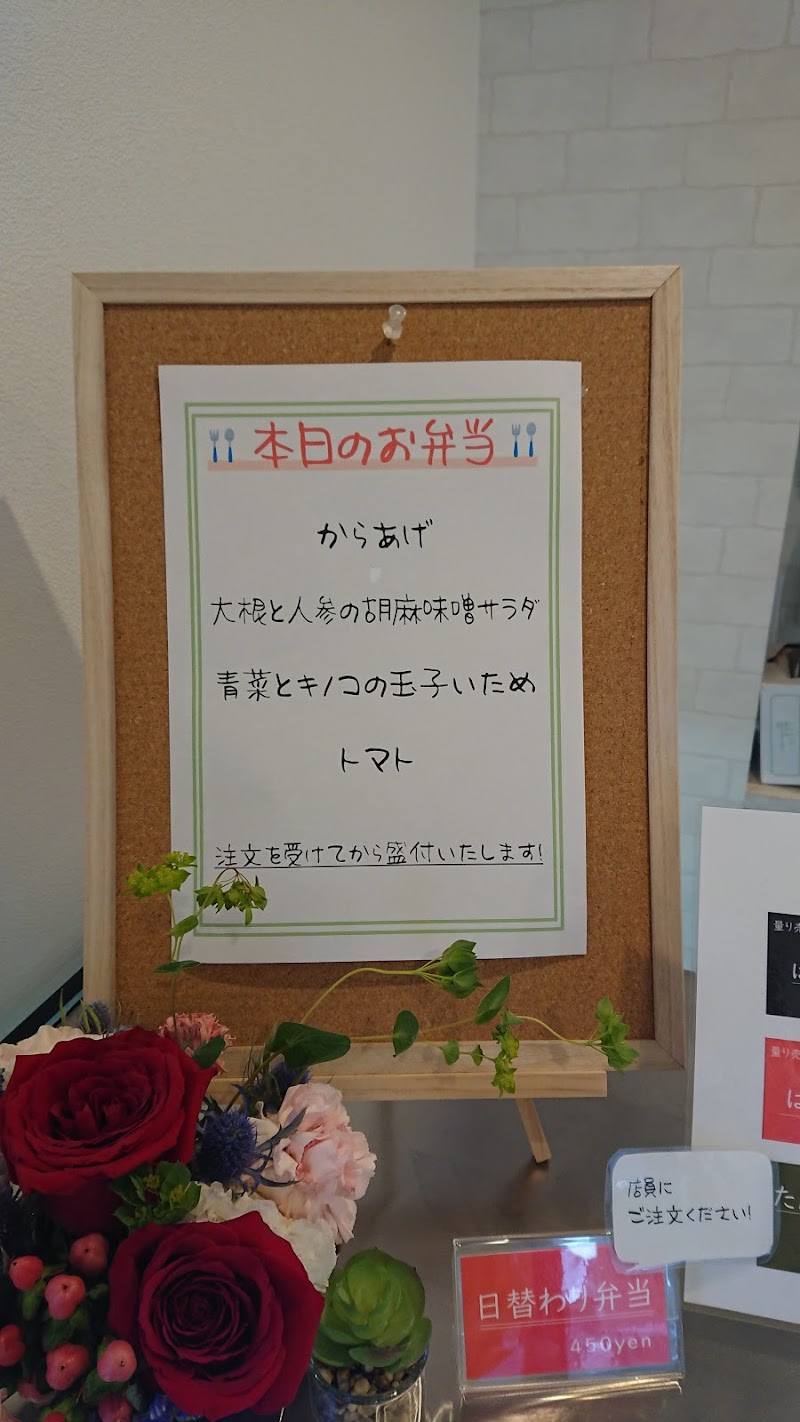 本日のお弁当
からあげ
大根と人参の胡麻味噌サラダ
青菜とキノコの玉子いため
トマト
注文を受けてから盛付いたします!
店員に
ご注文ください!
日替わり弁当
450yen
量り売
は
量り売
は
た